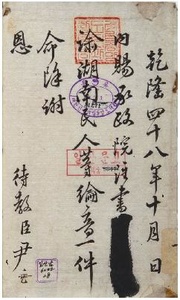 乾隆四十八年十月日
內賜承政院注書
諭湖南民人等綸音一件
命除謝
恩
待教臣尹